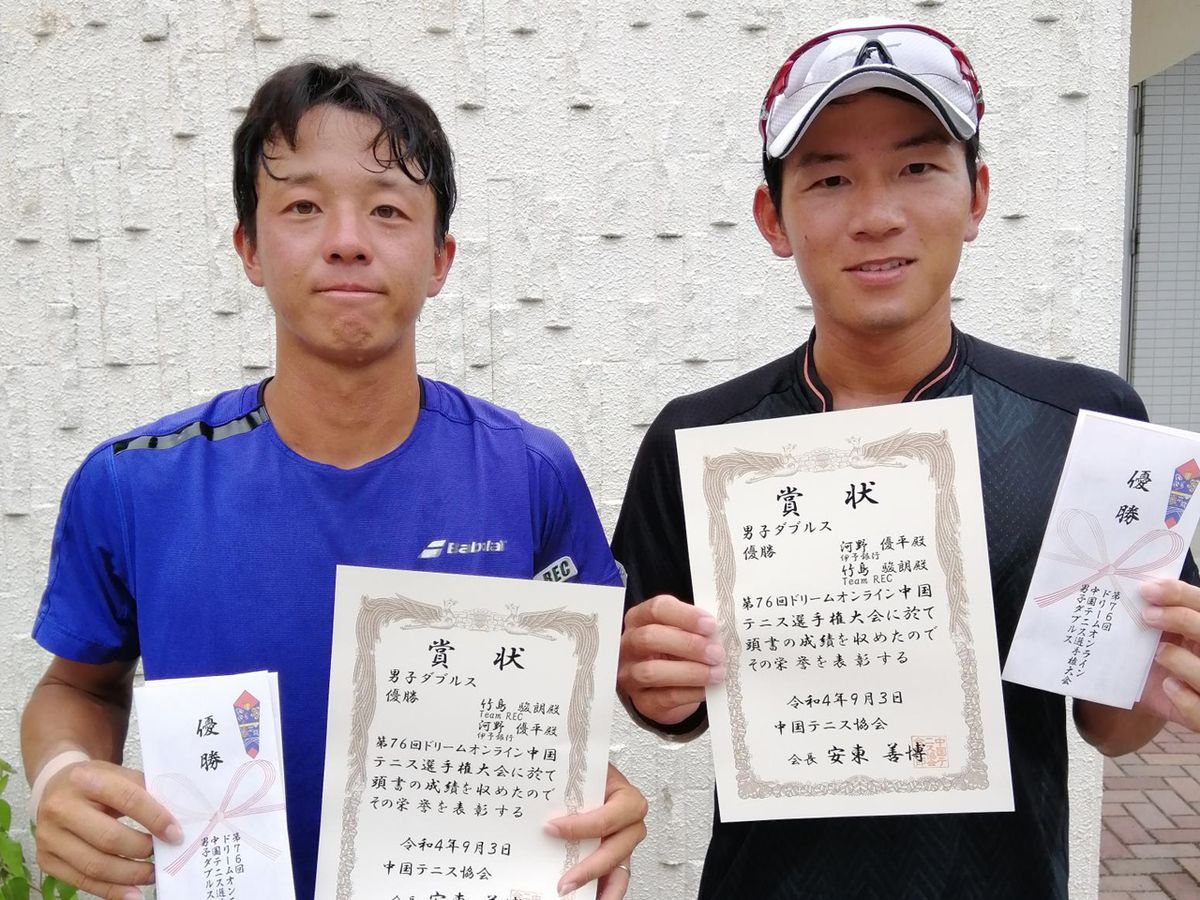 Babolat
REC
賞 状
男子ダブルス
優勝
竹島 駿朗殿
Team REC
河野 優平殿
伊予銀行
第76回ドリームオンライン中国
テニス選手権大会に於て
頭書の成績を収めたので
その栄誉を表彰する
令和4年9月3日
中国テニス協会
会長 安東 善博
優勝
第76回
ドリームオンライン
中国テニス選
男子ダブルス
賞 状
男子ダブルス
優勝
河野 優平殿
伊予銀行
竹島 駿朗殿
Team REC
第76回ドリームオンライン中国
テニス選手権大会に於て
頭書の成績を収めたので
その栄誉を表彰する
令和4年9月3日
中国テニス協会
会長 安東 善博
優勝
第76回
ドリームオンライン
中国テニス選手権大会
男子ダブルス